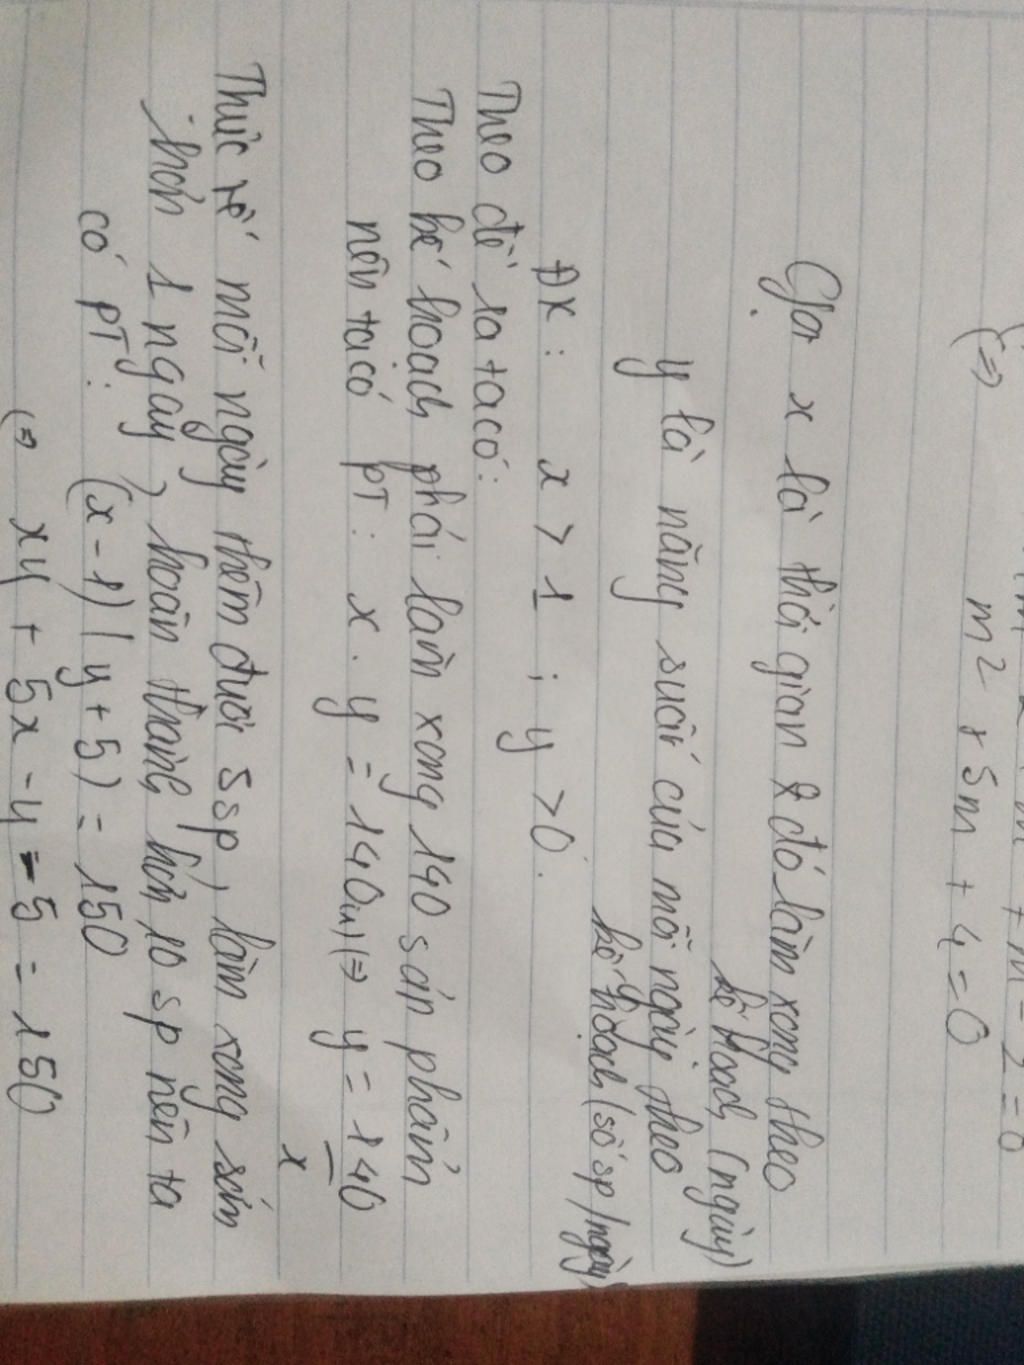 m² + 5m + 4 = 0
Gọi x là thời gian đó làm xong theo
kế hoạch (ngày)
y là năng suất của mỗi ngày theo
kế hoạch (số sp/ngày)
ĐK: x > 1 ; y > 0.
Theo đề ra ta có:
Theo kế hoạch phải làm xong 140 sản phẩm
nên ta có PT: x . y = 140 (1) (=> y = 140
x
Thực tế mỗi ngày thêm được 5 sp, làm xong sớm
hơn 1 ngày, hoàn thành hơn 10 sp nên ta
có PT: (x - 1)(y + 5) = 150
(=> xy + 5x - y - 5 = 150